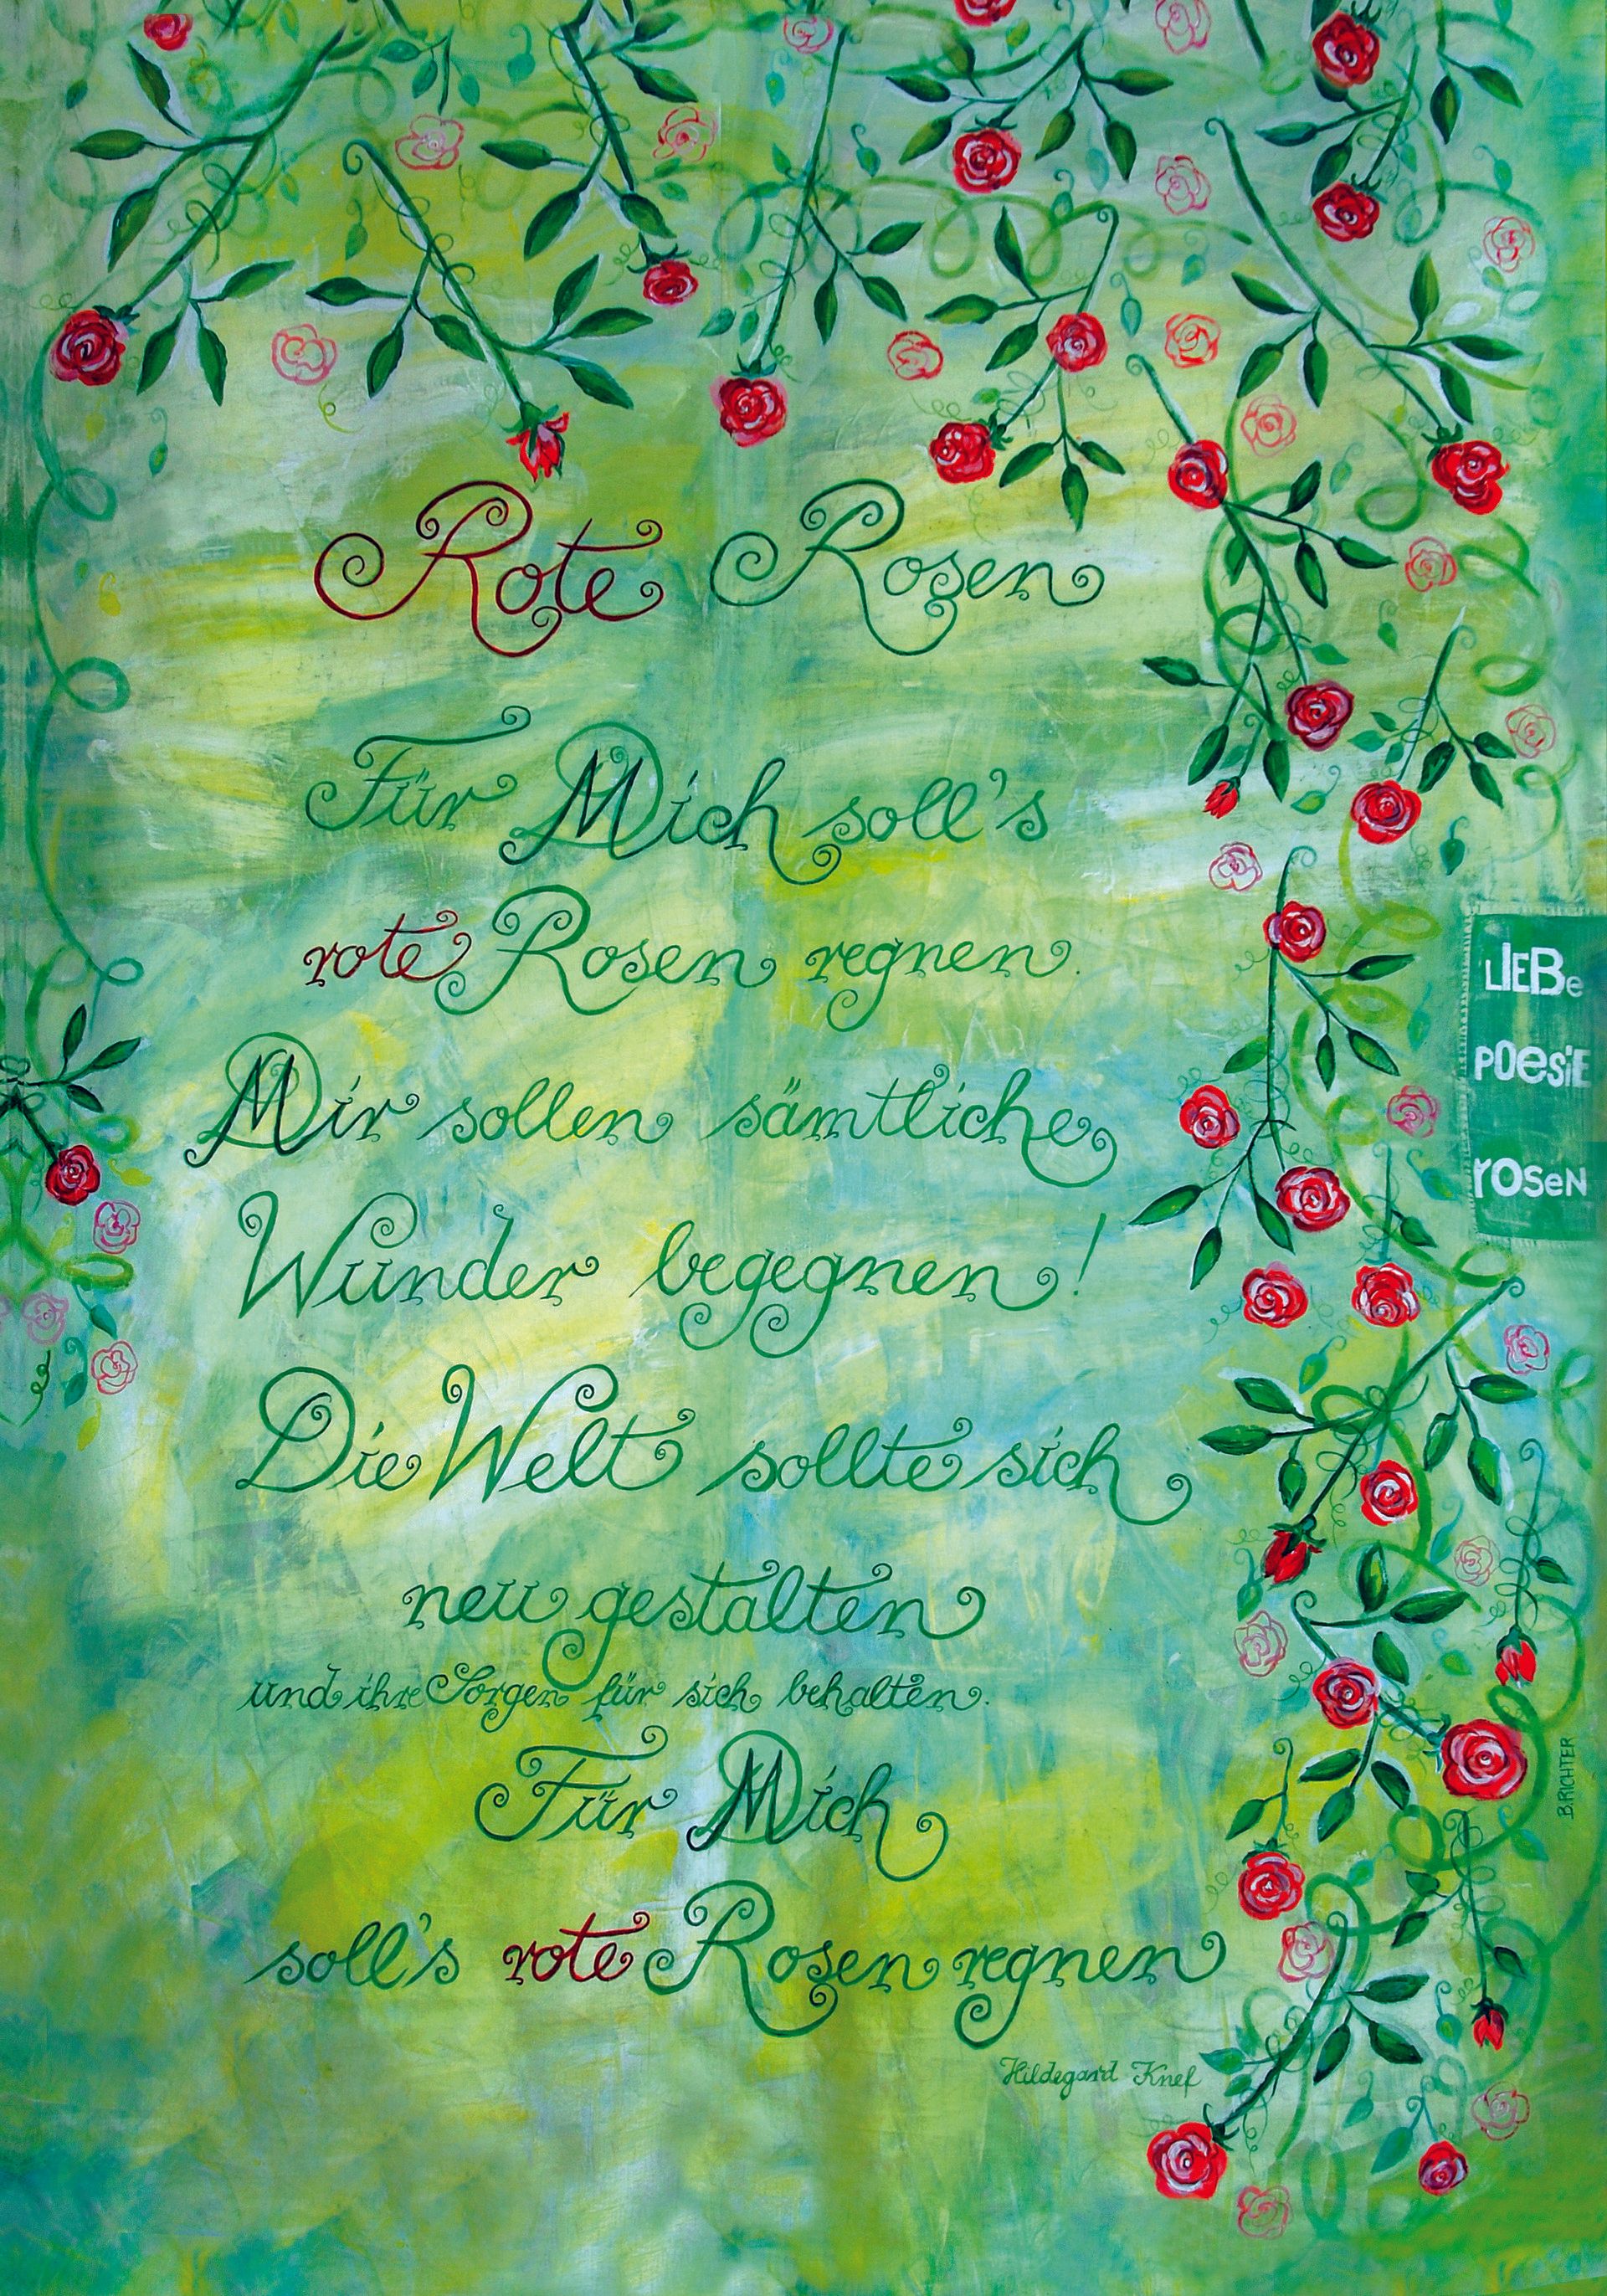 Rote Rosen
Für Mich soll's
rote Rosen regnen.
Mir sollen sämtliche
Wunder begegnen!
Die Welt sollte sich
neu gestalten
und ihre Sorgen für sich behalten.
Für Mich
soll's rote Rosen regnen
Hildegard Knef
LIEBe
POesiE
rOseN
B.RICHTER